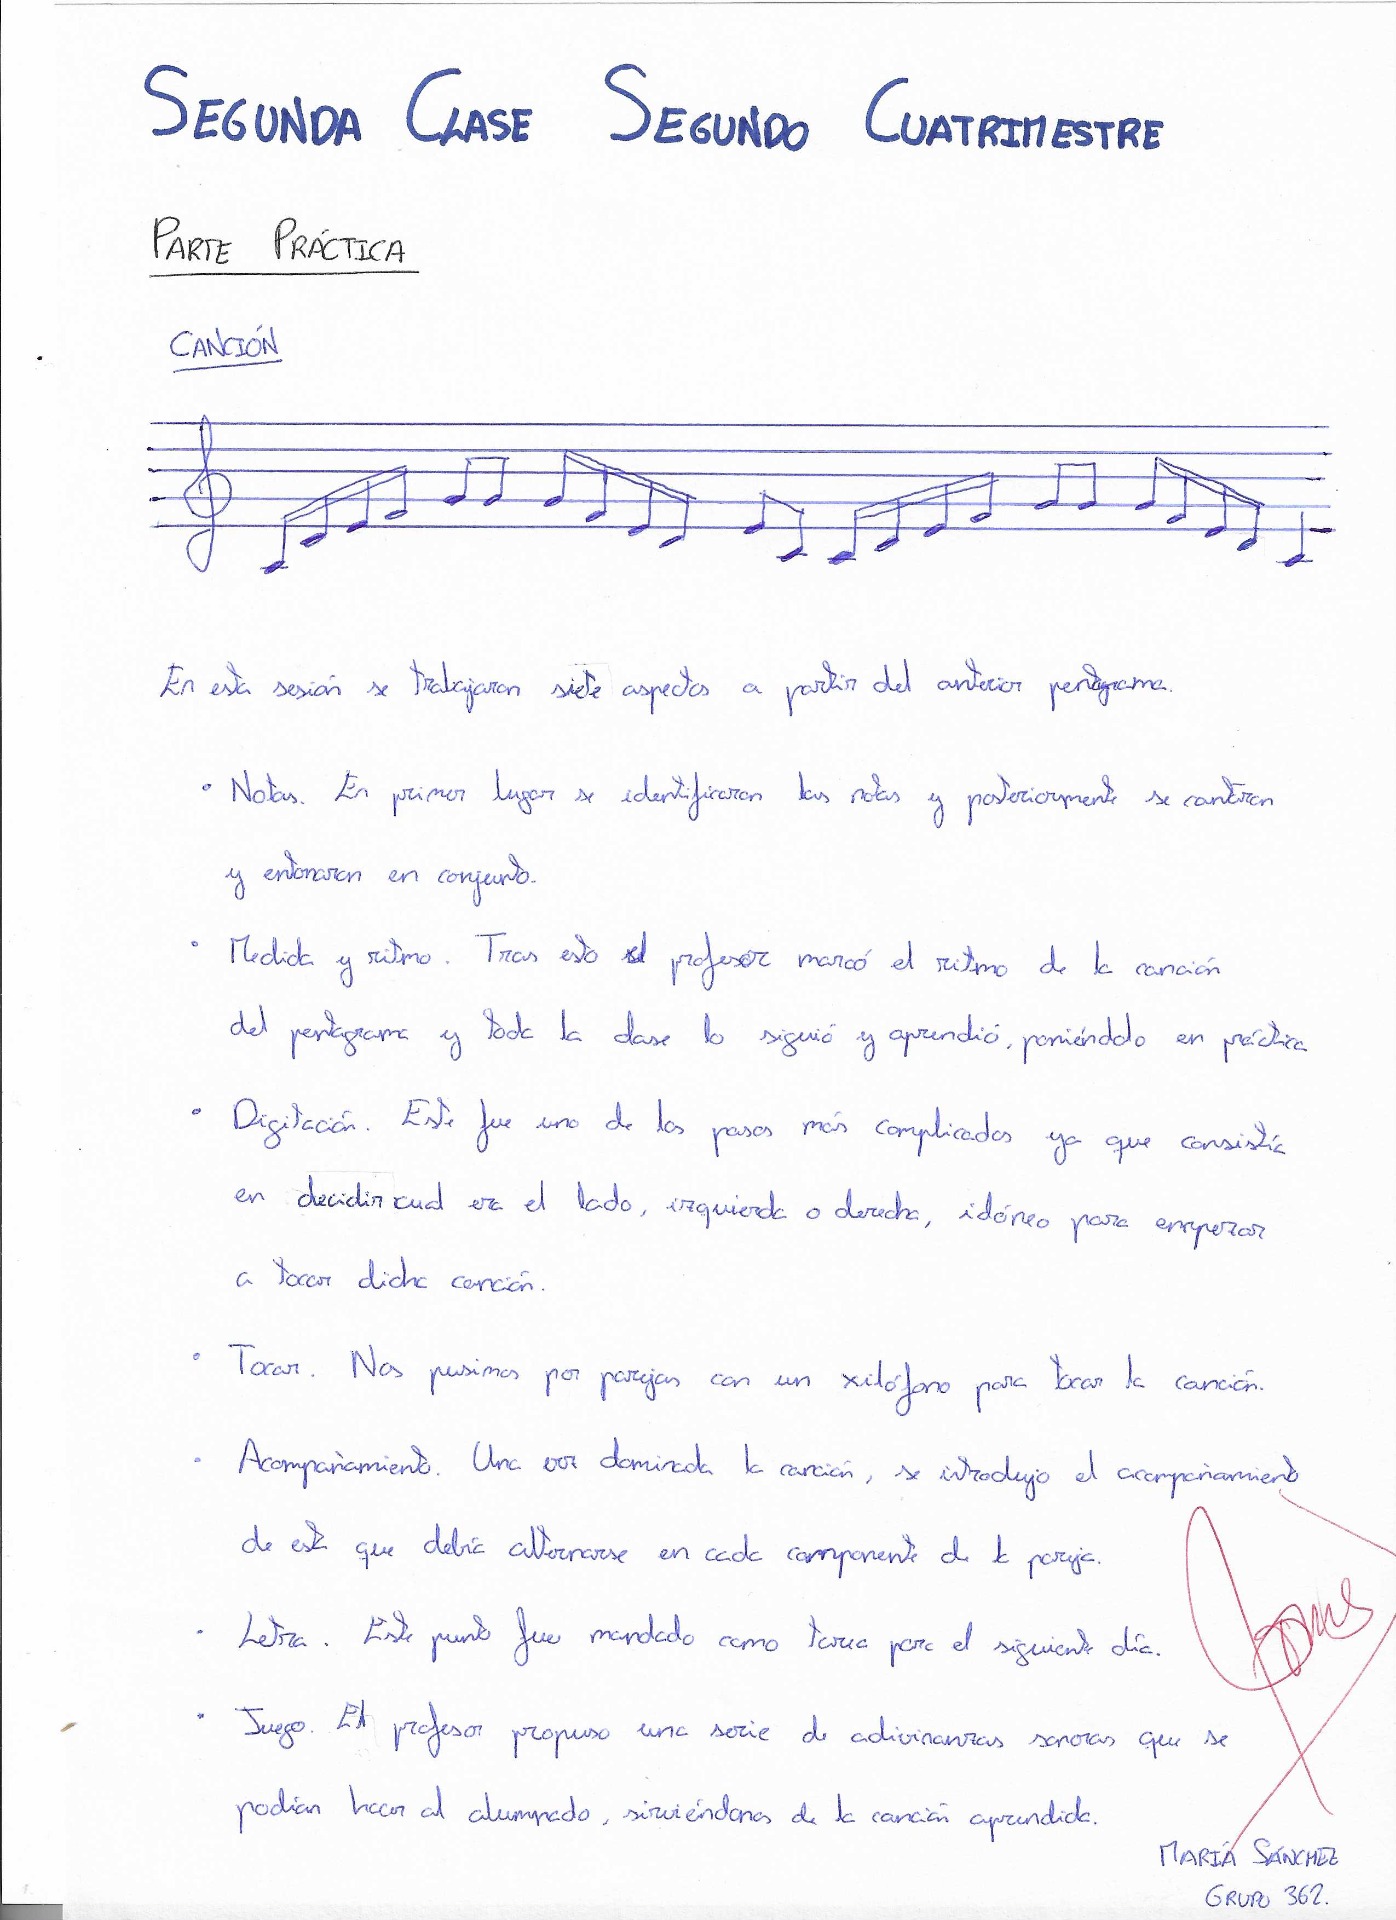 SEGUNDA CLASE SEGUNDO CUATRIMESTRE
PARTE PRÁCTICA
CANCIÓN
En esta sesión se trabajaran siete aspectos a partir del anterior pentagrama.
• Notas. En primer lugar se identificaron las notas y posteriormente se cantaron
y entonaron en conjunto.
• Medida y ritmo. Tras esto el profesor marcó el ritmo de la canción
del pentagrama y toda la clase lo siguió y aprendió, poniéndolo en práctica
• Digitación. Este fue uno de los pasos más complicados ya que consistía
en decidir cual era el lado, izquierda o derecha, idóneo para empezar
a tocar dicha canción.
• Tocar. Nos pusimos por parejas con un xilófono para tocar la canción.
• Acompañamiento. Una vez dominada la canción, se introdujo el acompañamiento
de esta que debía alternarse en cada componente de la pareja.
• Letra. Este punto fue mandado como tarea para el siguiente día.
• Juego. El profesor propuso una serie de adivinanzas sonoras que se
podían hacer al alumnado, sirviéndonos de la canción aprendida.
MARÍA SÁNCHEZ
GRUPO 362.